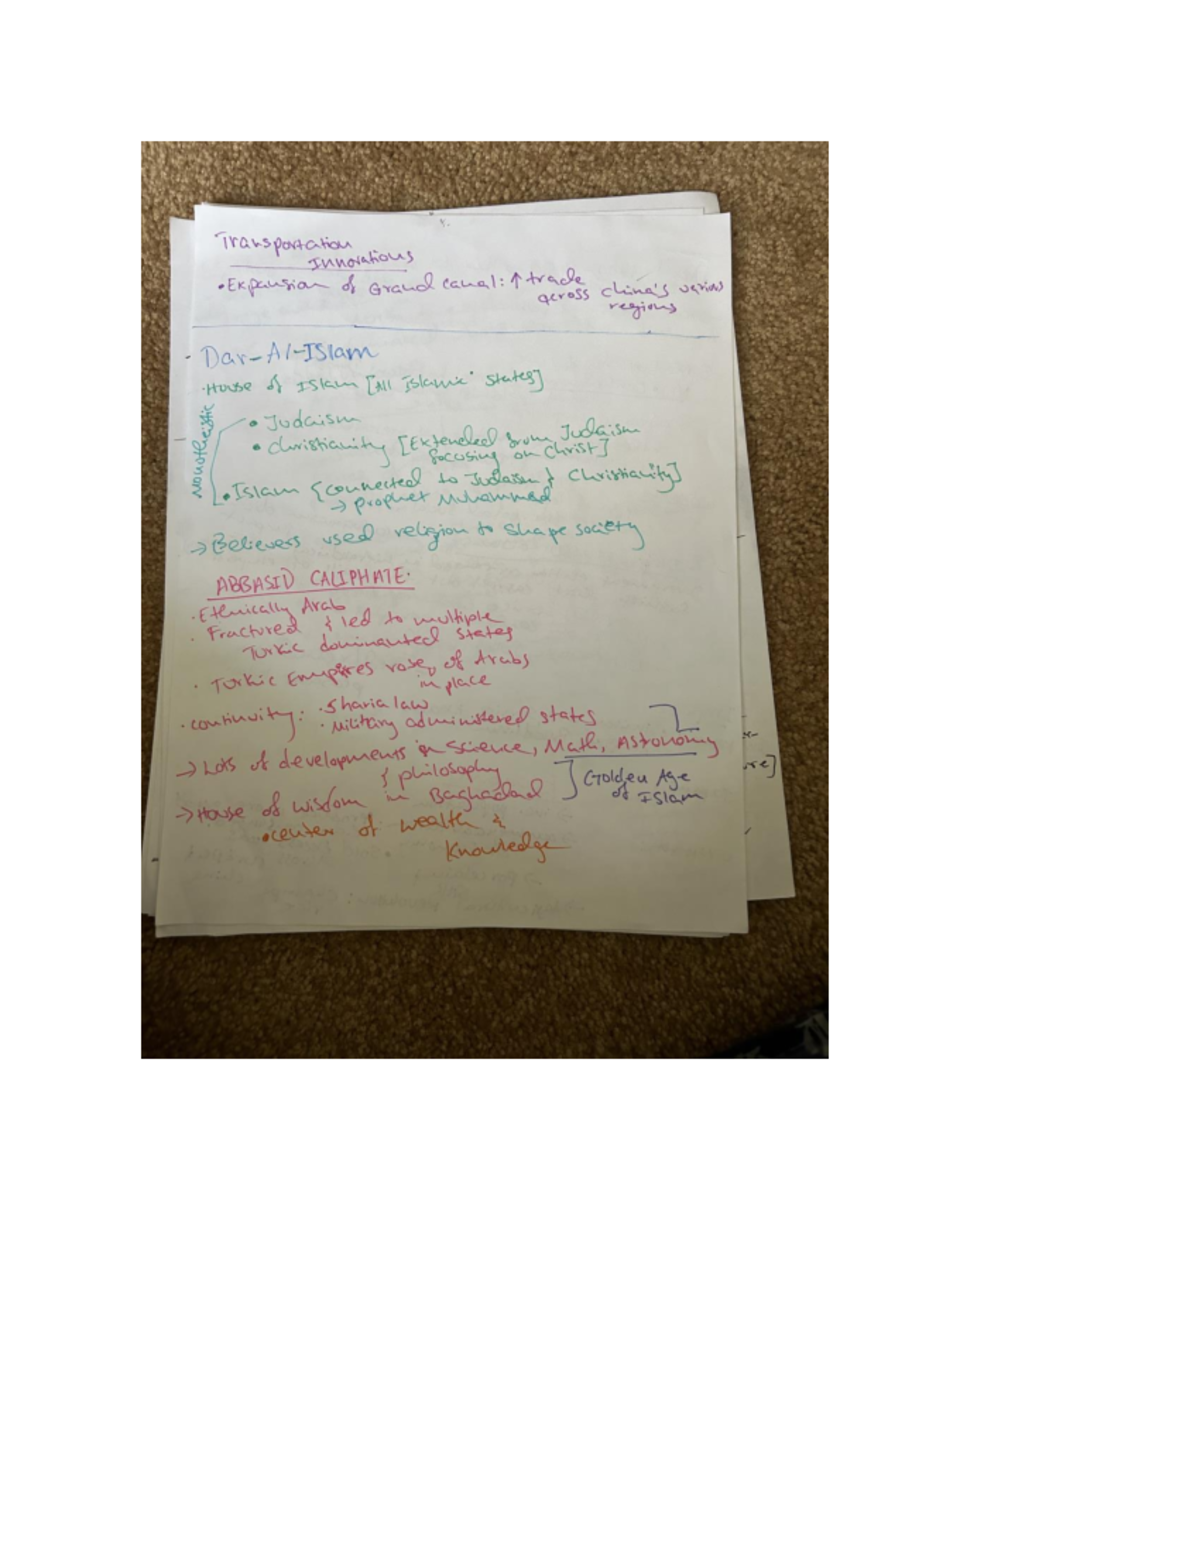 Transportation
Innovations
• Expansion of Grand canal: ↑ trade
across china's various
regions
Dar-Al-Islam
• House of Islam [All Islamic states]
Monotheistic
• Judaism
• Christianity [Extended from Judaism
focusing on Christ]
• Islam {connected to Judaism & Christianity]
→ prophet Muhammad
→ Believers used religion to shape society
ABBASID CALIPHATE
• Ethnically Arab
• Fractured & led to multiple
Turkic dominanted states
• Turkic Empires rose, of Arabs
in place
• continuity: • Sharia law
• Military administered states
→ Lots of developments in Science, Math, Astonomy
& philosophy
→ House of wisdom in Baghadad
] Golden Age
of Islam
• center of wealth &
Knowledge
re]